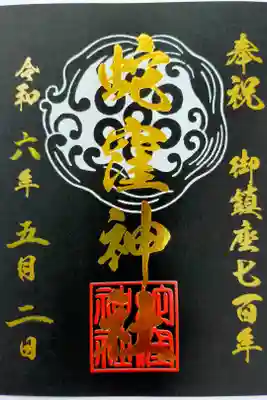 奉祝 御鎮座七百年
蛇窪神社
令和六年五月二日
蛇窪神社